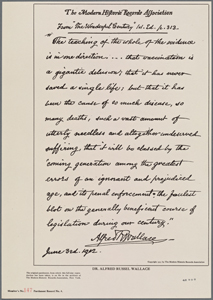 The Modern Historic Records Association
From "The Wonderful Century" W. Ed. p. 313.
"The teaching of the whole of the evidence
is in one direction. . . . that vaccination is
a gigantic delusion; that it has never
saved a single life; but that it has
been the cause of so much disease, so
many deaths, such a vast amount of
utterly needless and altogether undeserved
suffering, that it will be classed by the
coming generation among the greatest
errors of an ignorant and prejudiced
age, and its penal enforcement the foulest
blot on the generally beneficent course of
legislation during our century."
Alfred R. Wallace
June 3rd. 1912.
DR. ALFRED RUSSEL WALLACE